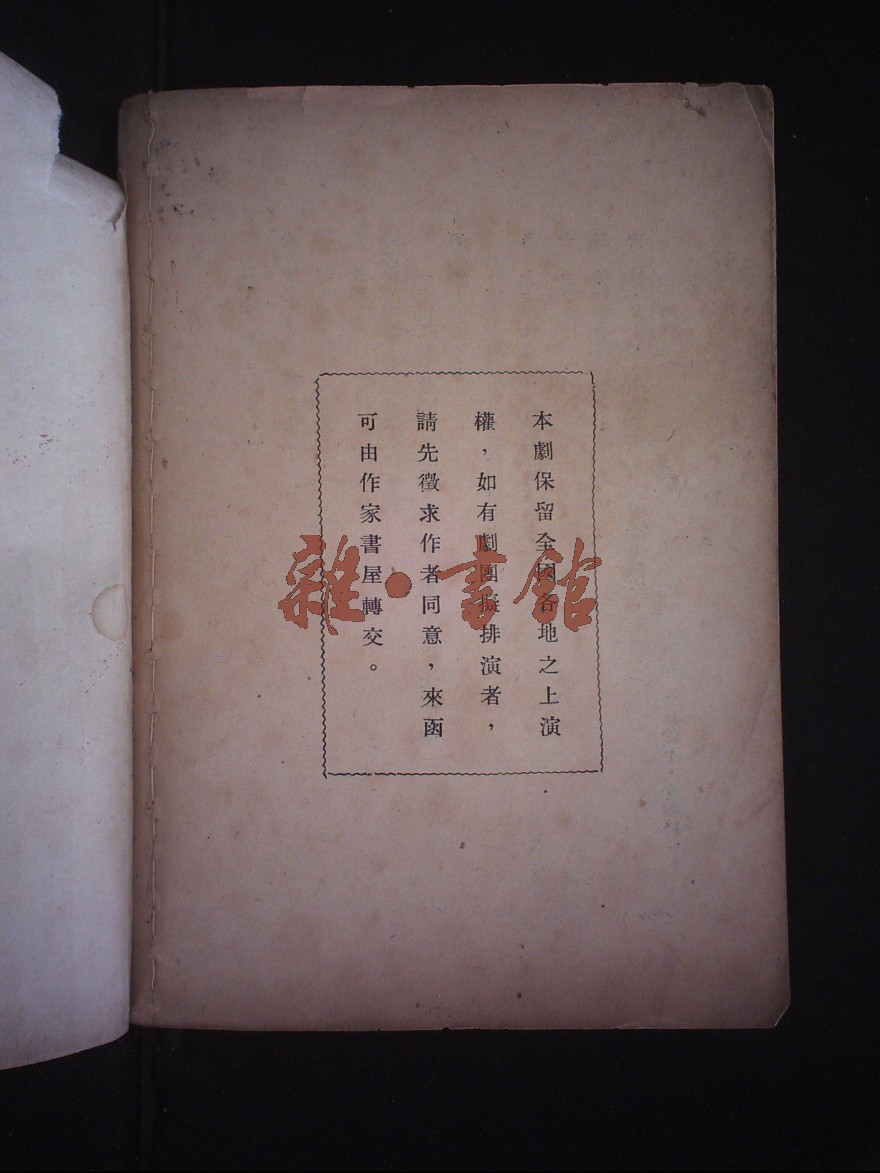 本劇保留全國各地之上演
權，如有劇團擬排演者，
請先徵求作者同意，來函
可由作家書屋轉交。
雜·書館